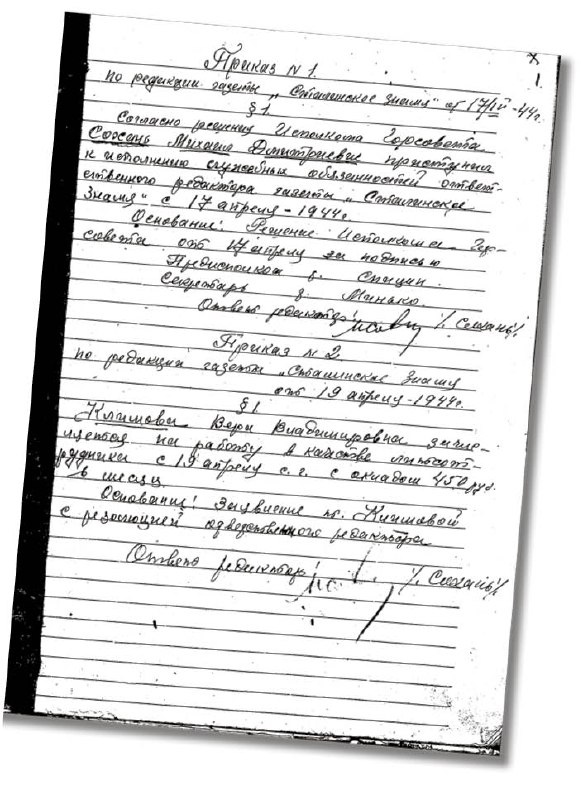 1
Приказ N 1.
по редакции газеты „Сталинское знамя" от 17/IV-44г.
§ 1.
Согласно решения Исполкома Горсовета
Сохань Михаил Дмитриевич приступил
к исполнению служебных обязанностей ответ-
ственного редактора газеты „Сталинское
Знамя" с 17 апреля - 1944г.
Основание: Решение Исполкома Гор-
совета от 17 апреля за подписью
Предисполкома т. Спицин.
Секретарь т. Минько.
Ответ редактор: /Сохань/
Приказ N 2
по редакции газеты „Сталинское Знамя
от 19 апреля - 1944г.
§ 1
Климова Вера Владимировна зачис-
ляется на работу в качестве литсот-
рудника с 19 апреля с.г. с окладом 450 руб.
в месяц.
Основание: заявление т. Климовой
с резолюцией ответственного редактора
Ответ редактор: /Сохань/